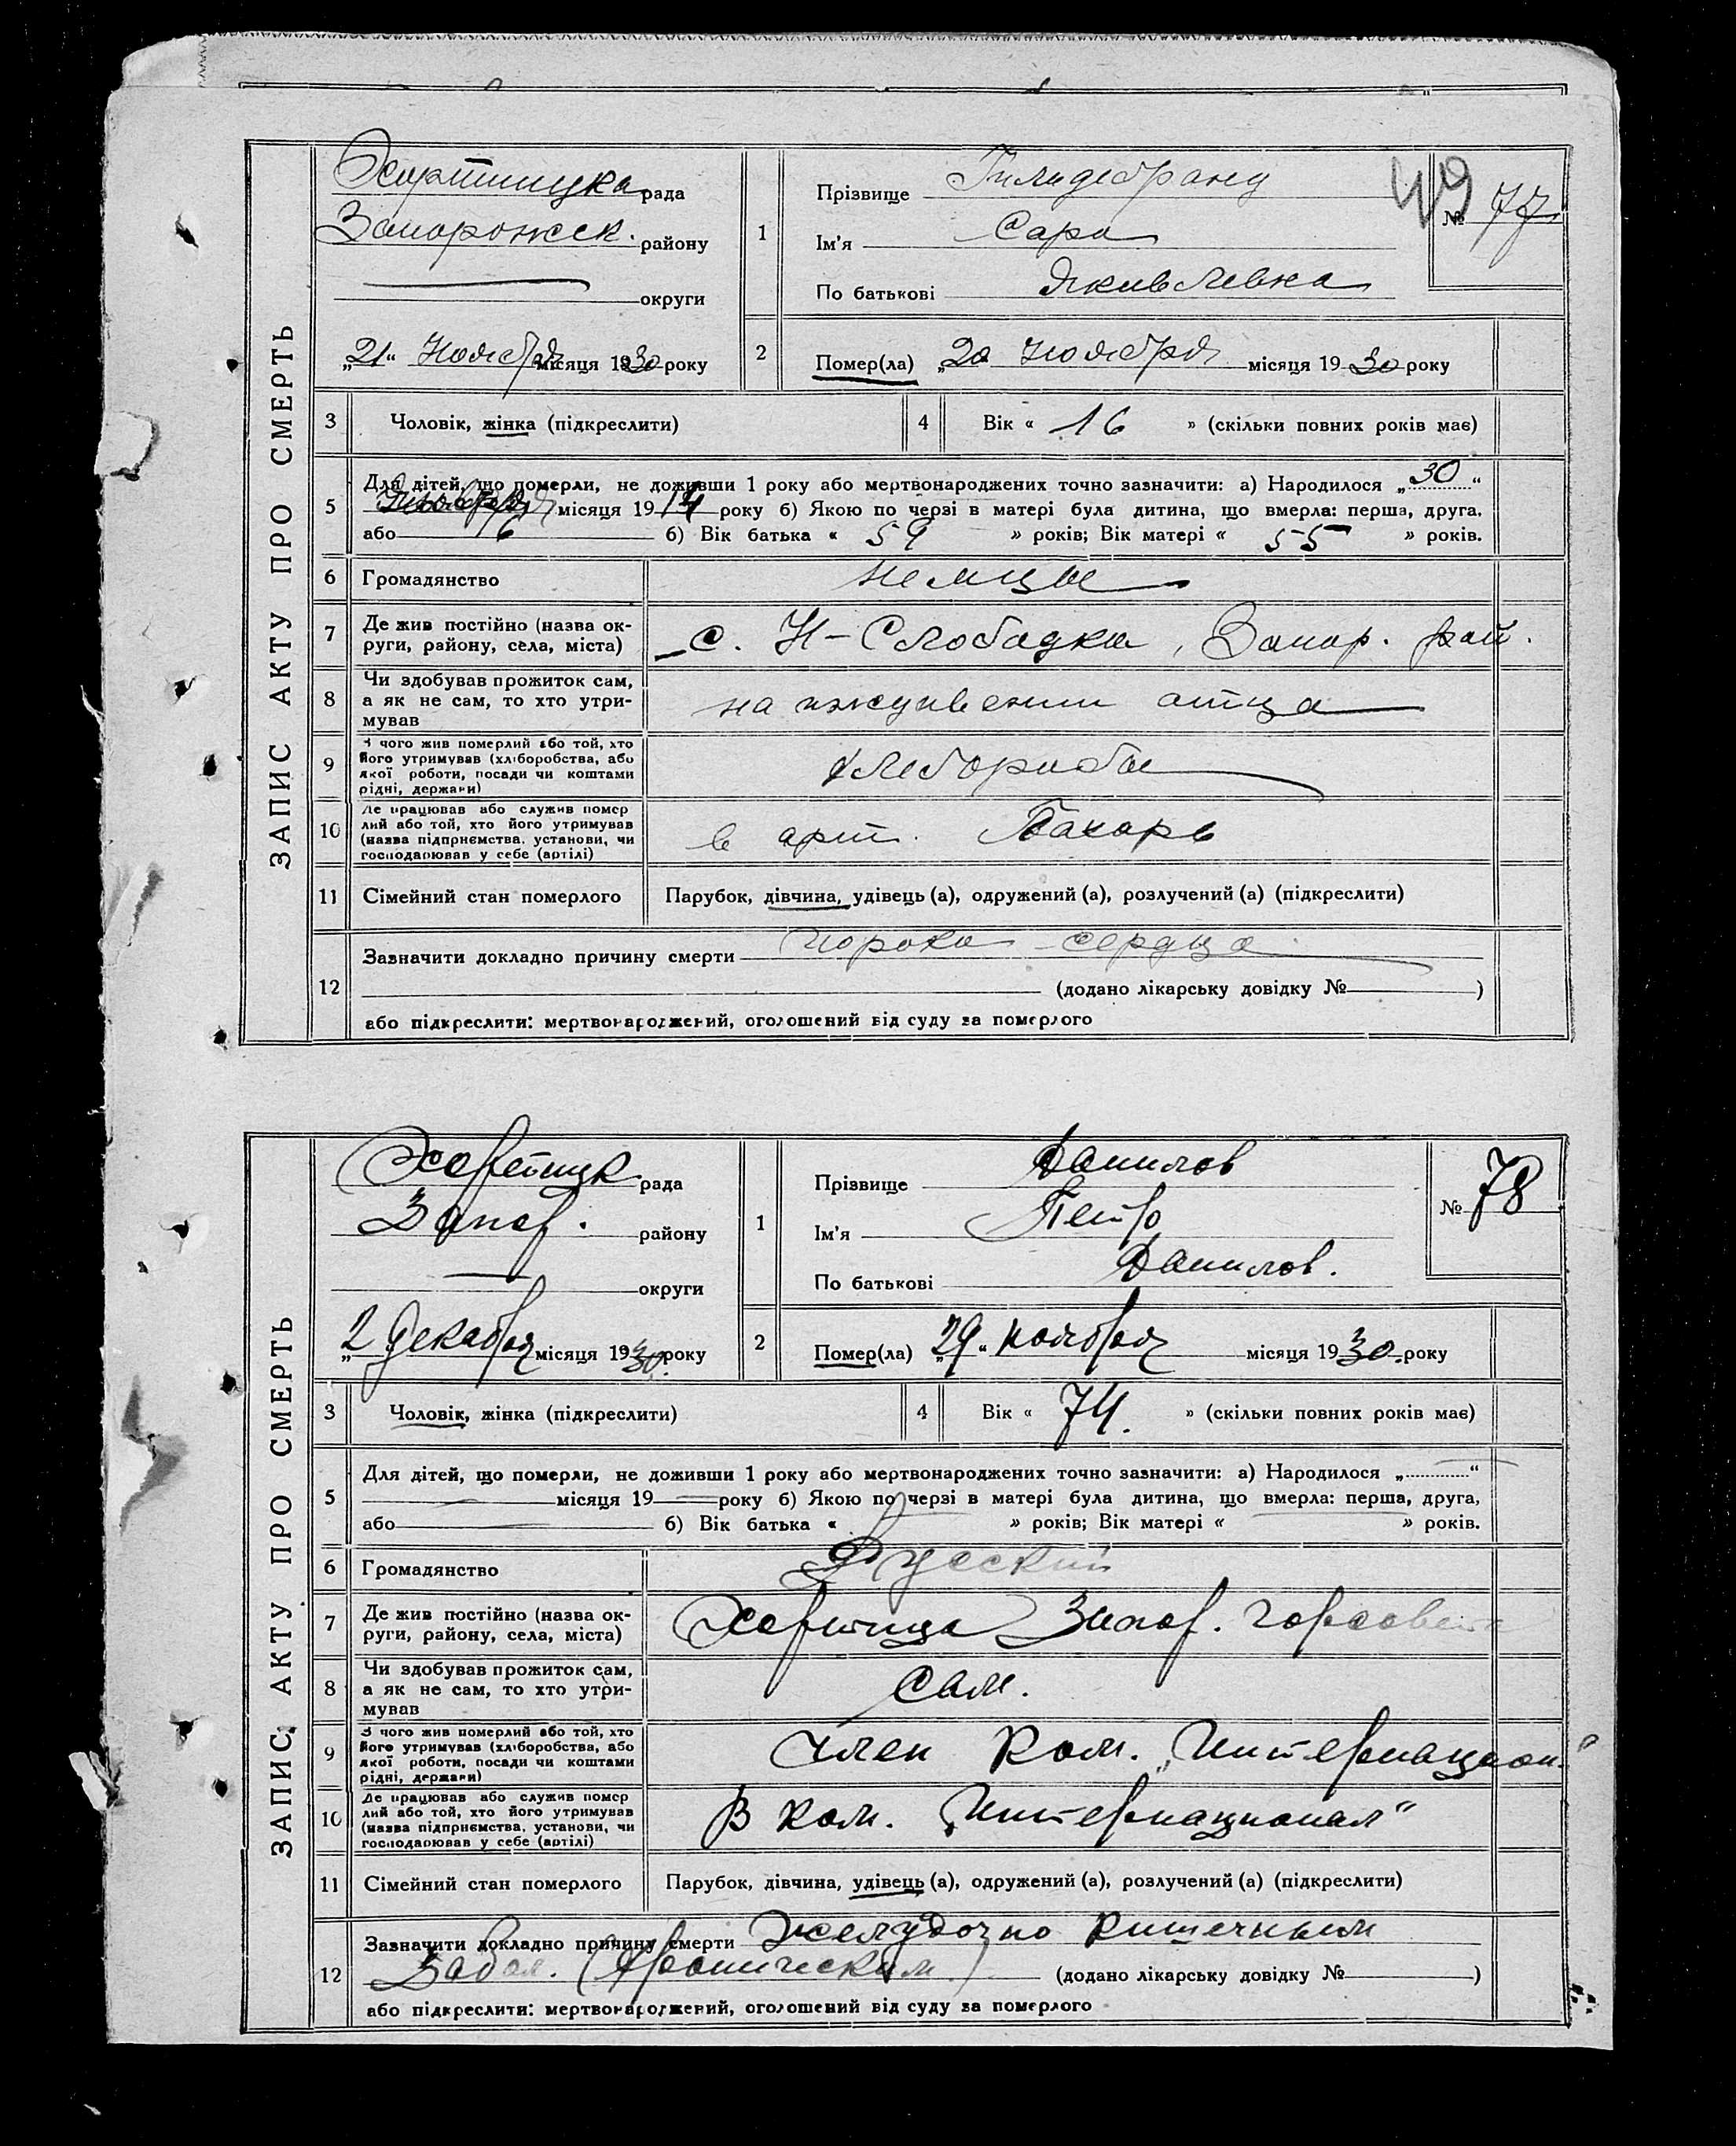 ЗАПИС АКТУ ПРО СМЕРТЬ
Хортицка рада
Запорожск. району
округи
„21“ Ноября місяця 1930 року
1 Прізвище Гильдебранд
Ім'я Сара
По батькові Яковлевна
49
№ 77
2 Помер(ла) „20 ноября місяця 1930 року
3 Чоловік, жінка (підкреслити)
4 Вік « 16 » (скільки повних років має)
5 Для дітей, що померли, не доживши 1 року або мертвонароджених точно зазначити: а) Народилося „30“
місяця 1914 року б) Якою по черзі в матері була дитина, що вмерла: перша, друга,
або 6 б) Вік батька « 59 » років; Вік матері « 55 » років.
6 Громадянство немцы
7 Де жив постійно (назва округи, району, села, міста) с. Н-Слободка, Запор. рай.
8 Чи здобував прожиток сам, а як не сам, то хто утримував на иждивении отца
9 З чого жив померлий або той, хто його утримував (хліборобства, або якої роботи, посади чи коштами рідні, держави) хлебороба
10 Де працював або служив померлий або той, хто його утримував (назва підприємства, установи, чи господарював у себе (артілі) в арт. Пахарь
11 Сімейний стан померлого Парубок, дівчина, удівець (а), одружений (а), розлучений (а) (підкреслити)
12 Зазначити докладно причину смерти порока сердца
(додано лікарську довідку № )
або підкреслити: мертвонароджений, оголошений від суду за померлого
ЗАПИС АКТУ ПРО СМЕРТЬ
Хортицк рада
Запор. району
округи
„2 Декабря місяця 1930. року
1 Прізвище Данилов
Ім'я Петр
По батькові Данилов.
№ 78
2 Помер(ла) „29“ ноября місяця 1930. року
3 Чоловік, жінка (підкреслити)
4 Вік « 74. » (скільки повних років має)
5 Для дітей, що померли, не доживши 1 року або мертвонароджених точно зазначити: а) Народилося „ “
місяця 19 року б) Якою по черзі в матері була дитина, що вмерла: перша, друга,
або б) Вік батька « » років; Вік матері « » років.
6 Громадянство Русский
7 Де жив постійно (назва округи, району, села, міста) Хортица Запор. горсовета
8 Чи здобував прожиток сам, а як не сам, то хто утримував Сам.
9 З чого жив померлий або той, хто його утримував (хліборобства, або якої роботи, посади чи коштами рідні, держави) член ком. „Интернацион.
10 Де працював або служив померлий або той, хто його утримував (назва підприємства, установи, чи господарював у себе (артілі) В ком. „Интернационал“
11 Сімейний стан померлого Парубок, дівчина, удівець (а), одружений (а), розлучений (а) (підкреслити)
12 Зазначити докладно причину смерти Желудочно кишечным
Забол. (Хроническим) (додано лікарську довідку № )
або підкреслити: мертвонароджений, оголошений від суду за померлого